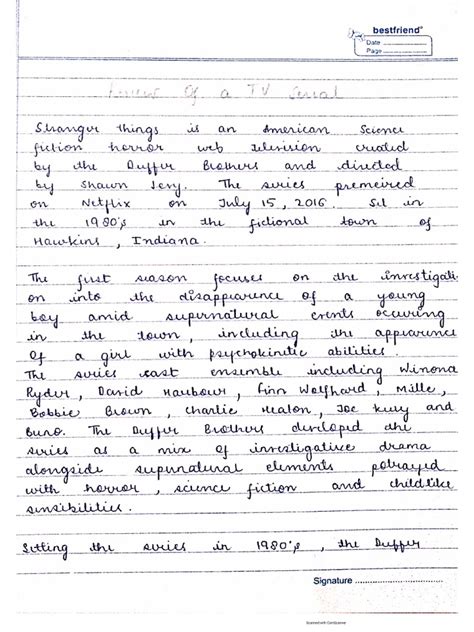 bestfriend
Date ..................
Page ..................
Review Of a TV Serial
Stranger things is an American Science
fiction horror web television created
by the Duffer Brothers and directed
by Shawn Levy. The series premeired
on Netflix on July 15, 2016. Set in
the 1980's in the fictional town of
Hawkins, Indiana.
The first season focuses on the investigati
on into the disappearence of a young
boy amid supernatural events occuring
in the town, including the appearence
of a girl with psychokinetic abilities.
The series cast ensemble including Winona
Ryder, David Harbour, Finn Wolfhard, Mille,
Bobbie Brown, Charlie Heaton, Joe Keery and
The Duffer Brothers developed the
series as a mix of investigative drama
alongside supernatural elements potrayed
with horror, science fiction and childlike
sensibilities.
Sitting the series in 1980's, the Duffer
Signature ..............................
Scanned with CamScanner